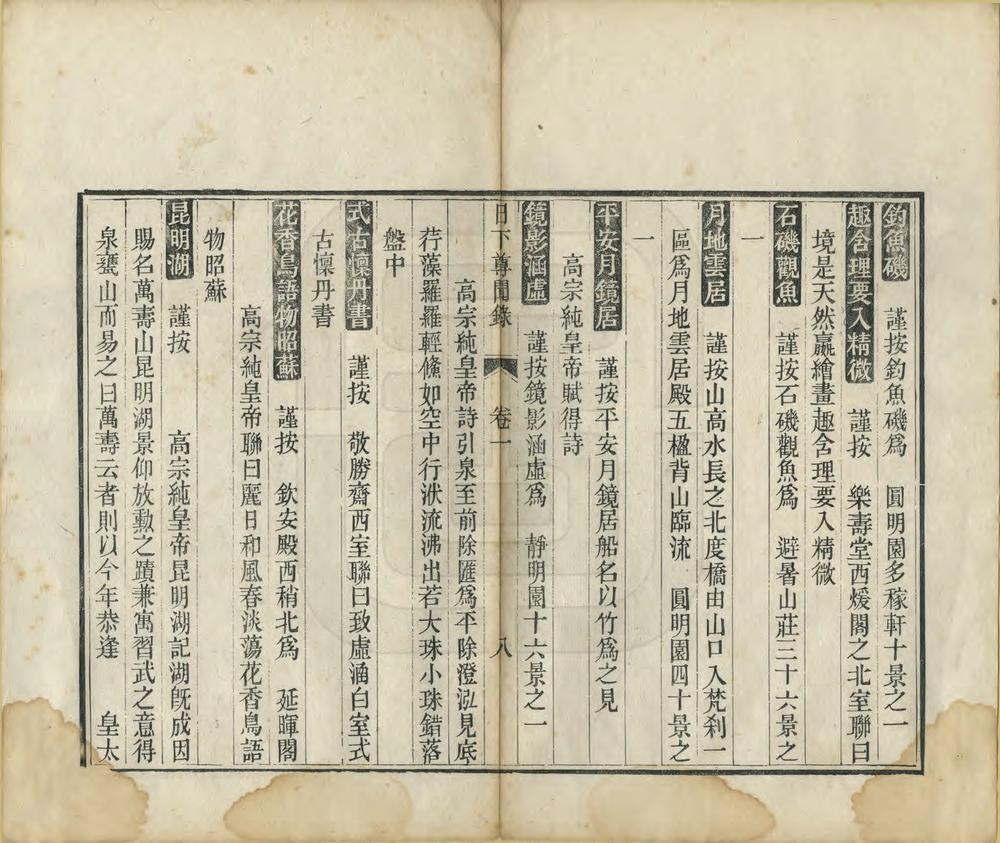 釣魚磯 謹按釣魚磯爲 圓明園多稼軒十景之一
趣含理要入精微 謹按 樂壽堂西煖閣之北室聯曰
境是天然贏繪畫趣含理要入精微
石磯觀魚 謹按石磯觀魚爲 避暑山莊三十六景之
一
月地雲居 謹按山高水長之北度橋由山口入梵刹一
區爲月地雲居殿五楹背山臨流 圓明園四十景之
一
平安月鏡居 謹按平安月鏡居船名以竹爲之見
高宗純皇帝賦得詩
鏡影涵虛 謹按鏡影涵虛爲 靜明園十六景之一
日下尊聞錄 卷一 八
高宗純皇帝詩引泉至前除匯爲平除澄泓見底
荇藻羅羅輕鯈如空中行洑流沸出若大珠小珠錯落
盤中
式古懍丹書 謹按 敬勝齋西室聯曰致虛涵白室式
古懍丹書
花香鳥語物昭蘇 謹按 欽安殿西稍北爲 延暉閣
高宗純皇帝聯曰麗日和風春淡蕩花香鳥語
物昭蘇
昆明湖 謹按 高宗純皇帝昆明湖記湖旣成因
賜名萬壽山昆明湖景仰放勳之蹟兼寓習武之意得
泉甕山而易之曰萬壽云者則以今年恭逢 皇太